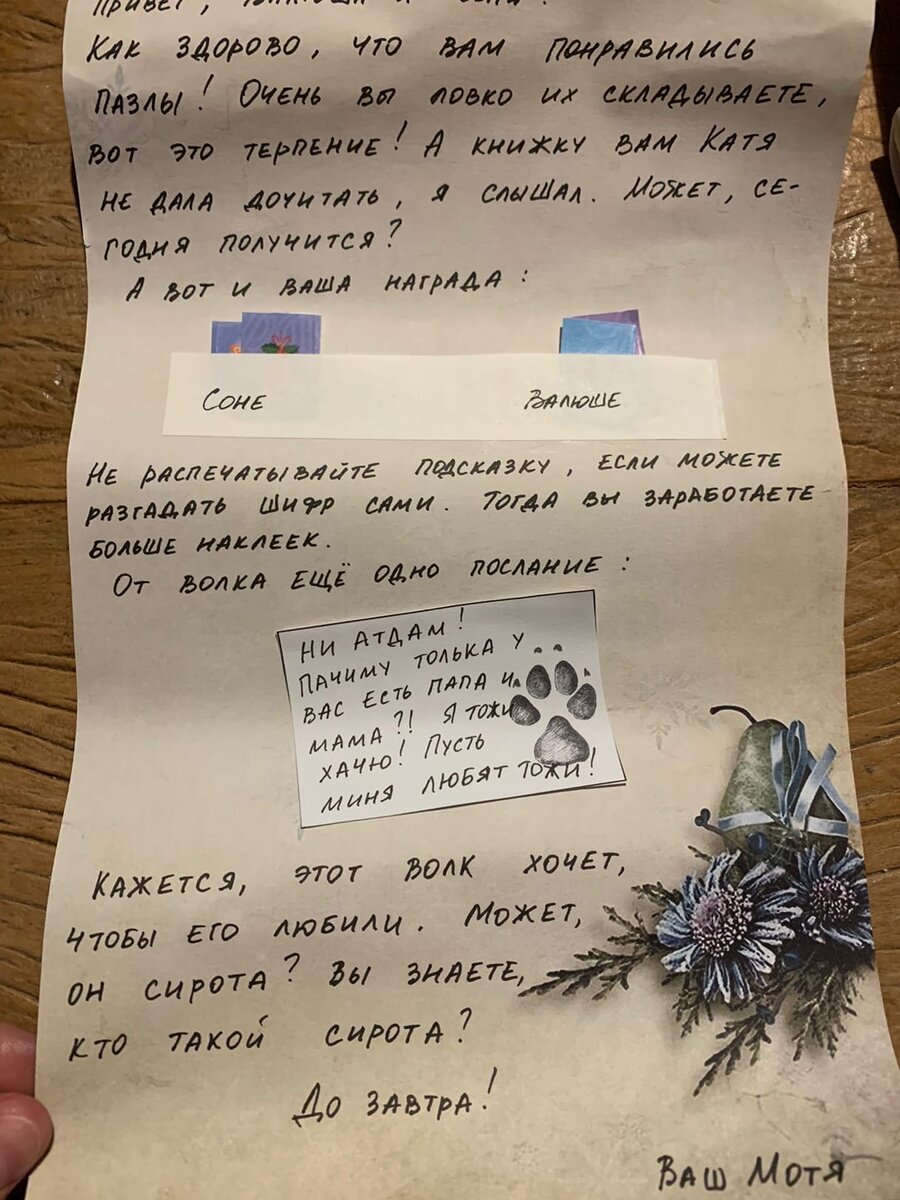 Привет, Валюша и Соня!
Как здорово, что вам понравились
пазлы! Очень вы ловко их складываете,
вот это терпение! А книжку вам Катя
не дала дочитать, я слышал. Может, се-
годня получится?
А вот и ваша награда:
Соне Валюше
Не распечатывайте подсказку, если можете
разгадать шифр сами. Тогда вы заработаете
больше наклеек.
От волка ещё одно послание:
Ни атдам!
Пачиму толька у
вас есть папа и
мама?! Я тожи
хачю! Пусть
миня любят тожи!
Кажется, этот волк хочет,
чтобы его любили. Может,
он сирота? Вы знаете,
кто такой сирота?
До завтра!
Ваш Мотя